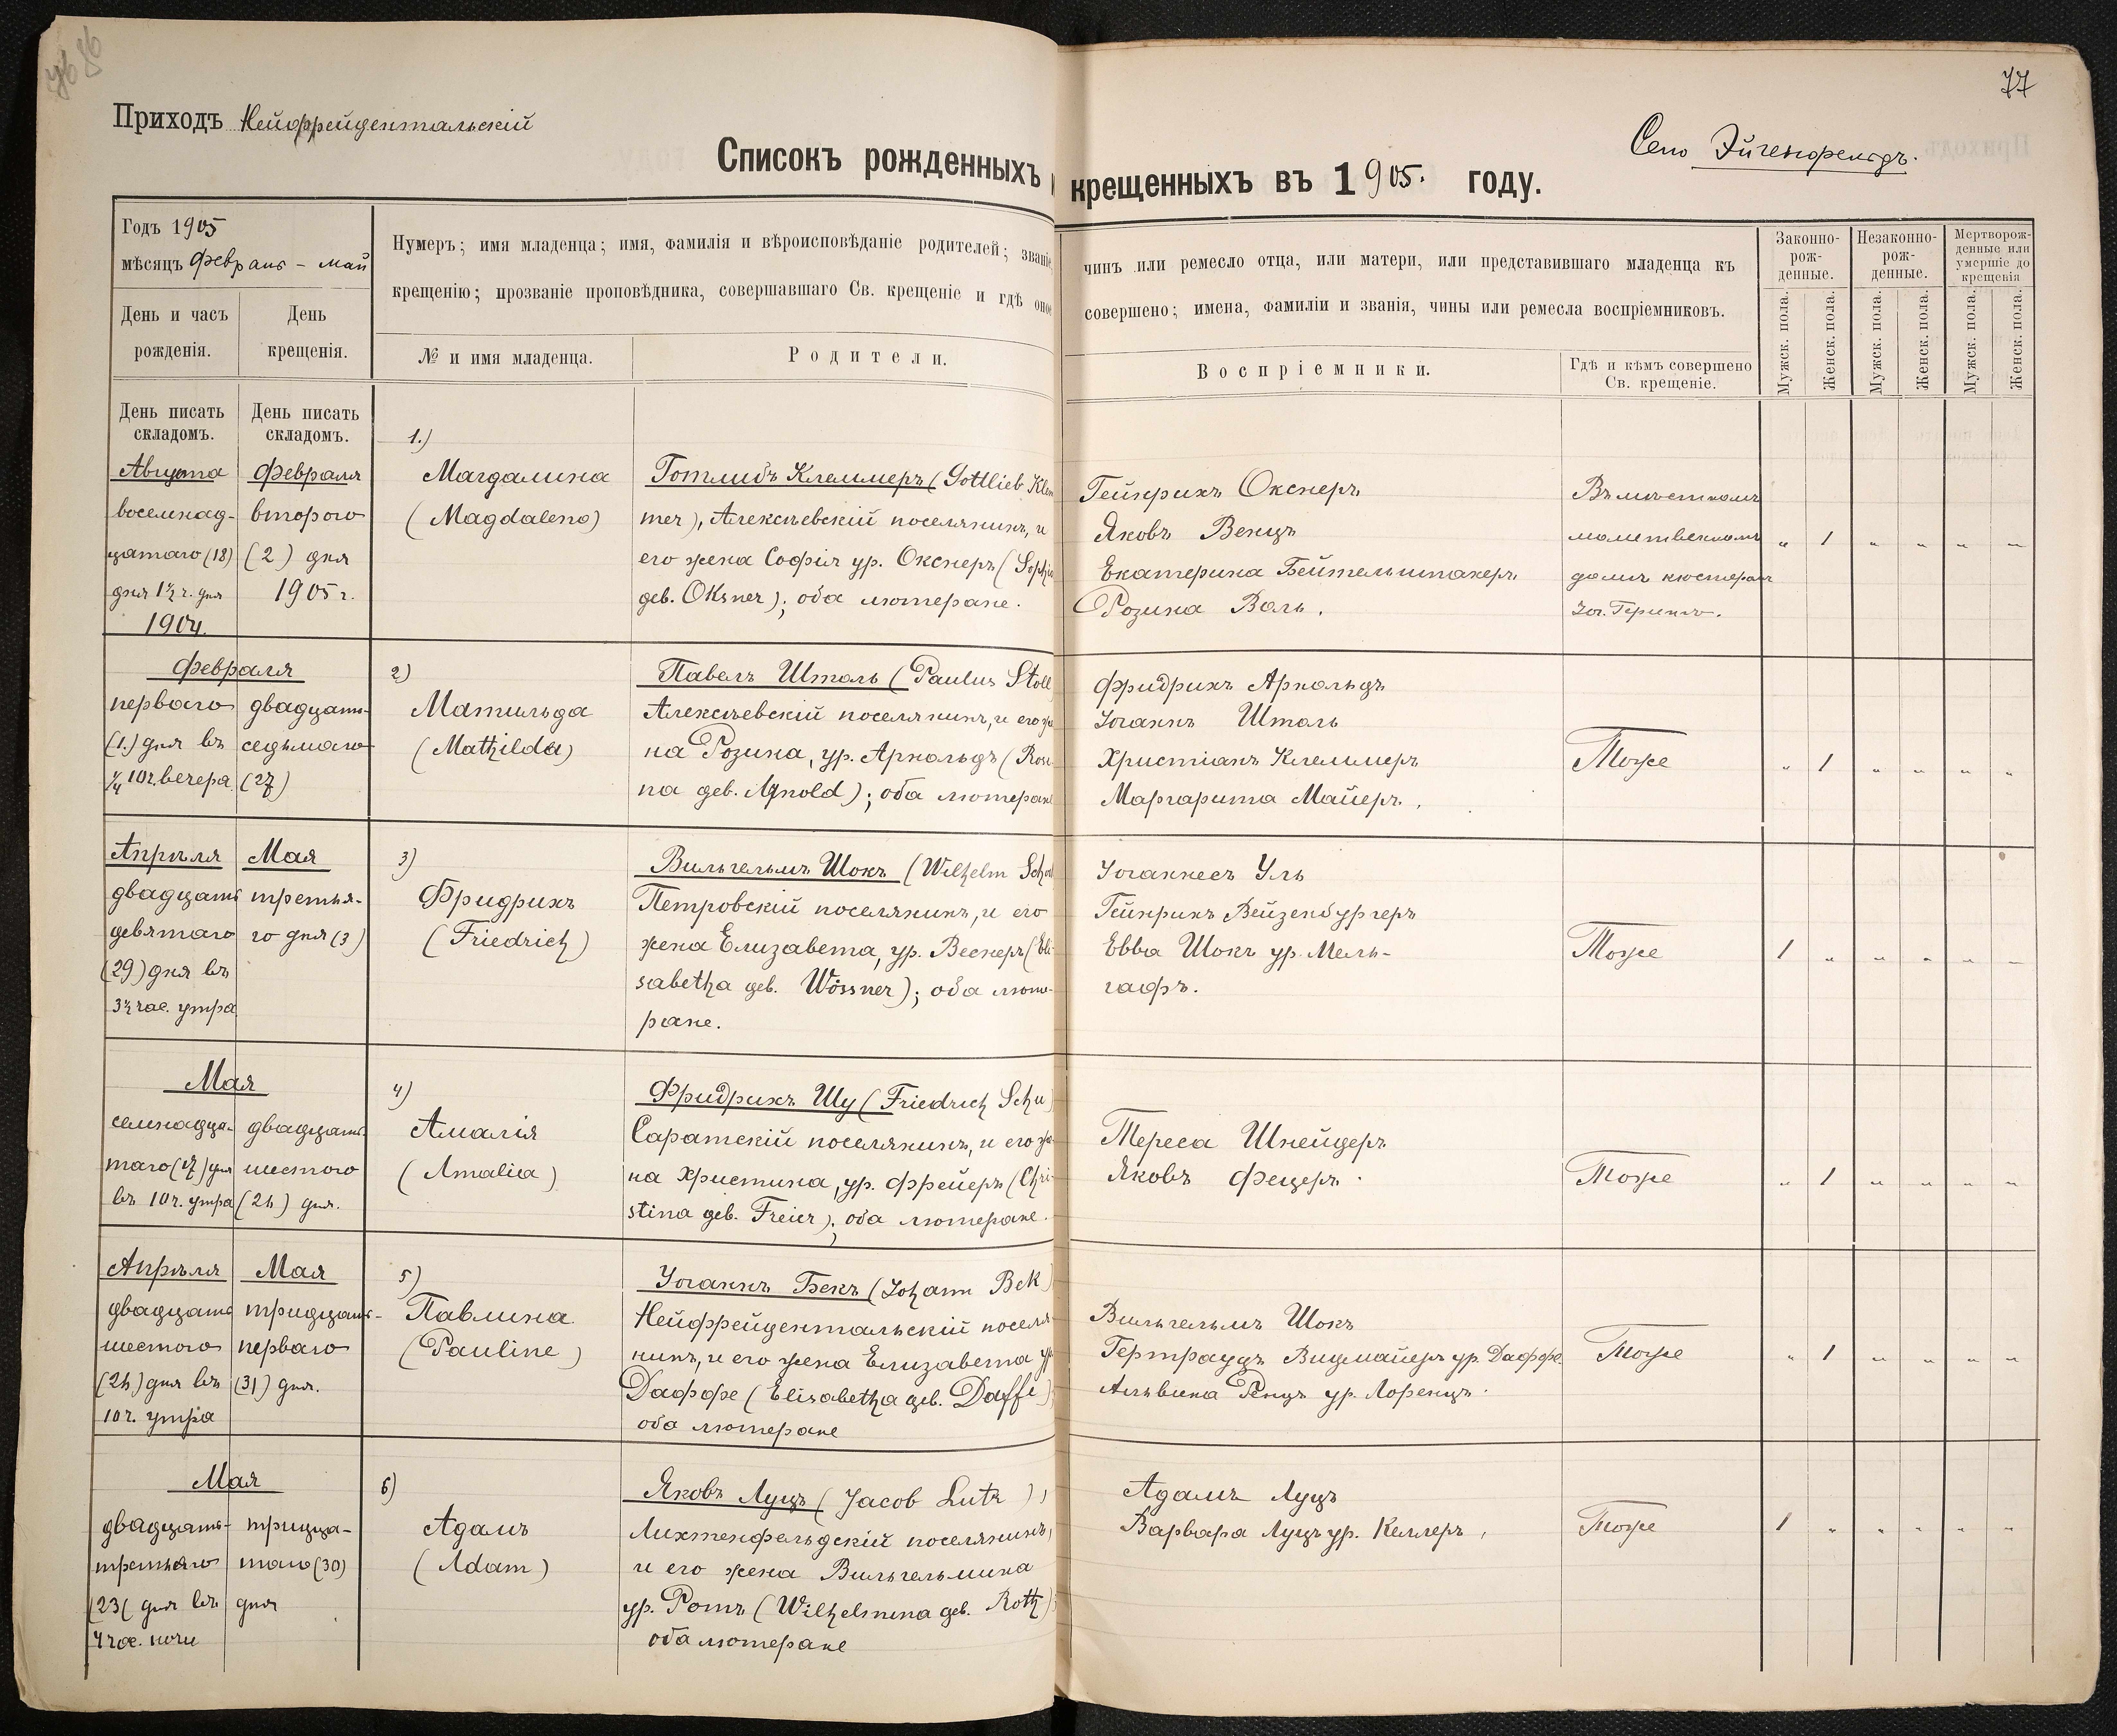 77
Приходъ Нейфрейдентальскій
Село Эйгенфельдъ.
Списокъ рожденныхъ
крещенныхъ въ 1905. году.
Годъ 1905
мѣсяцъ Февраль - май
День и часъ рожденія.
День крещенія.
Нумеръ; имя младенца; имя, фамилія и вѣроисповѣданіе родителей; званіе,
крещенію; прозваніе проповѣдника, совершавшаго Св. крещеніе и гдѣ оное
№ и имя младенца.
Родители.
чинъ или ремесло отца, или матери, или представившаго младенца къ
совершено; имена, фамиліи и званія, чины или ремесла воспріемниковъ.
Воспріемники.
Гдѣ и кѣмъ совершено
Св. крещеніе.
Законно-
рож-
денные.
Незаконно-
рож-
денные.
Мертворож-
денные или
умершіе до
крещенія
Мужск. пола.
Женск. пола.
Мужск. пола.
Женск. пола.
Мужск. пола.
Женск. пола.
День писать
складомъ.
День писать
складомъ.
Августа
восемнад-
цатаго (18)
дня 1½ ч. дня
1904.
Февраля
второго
(2) дня
1905 г.
1.)
Магдалина
(Magdalena)
Готлибъ Клеммеръ (Gottlieb Klem
mer), Алексѣевскій поселянинъ, и
его жена Софія ур. Окснеръ (Sophia
geb. Oksner); оба лютеране.
Гейнрихъ Окснеръ
Яковъ Венцъ
Екатерина Бейтельшпахеръ
Розина Валь.
Въ мѣстномъ
молитвенномъ
домѣ кюстеромъ
„ 1 „ „ „ „
Февраля
перваго
(1.) дня въ
¼ 10 ч. вечера
двадцать-
седьмаго
(27)
2)
Матильда
(Mathilda)
Павелъ Штоль (Paulus Stoll)
Алексѣевскій поселянинъ, и его же
на Розина, ур. Арнольдъ (Rosi-
na geb. Arnold); оба лютеране
Фридрихъ Арнольдъ
Іоганнъ Штоль
Христіанъ Клеммеръ
Маргарита Майеръ.
Тоже
„ 1 „ „ „ „
Апрѣля
двадцать
девятаго
(29) дня въ
3½ час. утра
Мая
третья-
го дня (3)
3)
Фридрихъ
(Friedrich)
Вильгельмъ Шокъ (Wilhelm Schock
Петровскій поселянинъ, и его
жена Елизавета, ур. Веснеръ (Eli-
sabetha geb. Wössner); оба люте-
ране.
Іоганнесъ Уль
Гейнрихъ Вейзенбургеръ
Евва Шокъ ур. Мель-
гафъ.
Тоже
1 „ „ „ „ „
Мая
семнадца-
таго (17) дня
въ 10 ч. утра
двадцать
шестого
(26) дня.
4)
Амалія
(Amalia)
Фридрихъ Шу (Friedrich Schu)
Саратскій поселянинъ, и его же-
на Христина, ур. Фрейеръ (Chri-
stina geb. Freier); оба лютеране.
Тереса Шнейдеръ
Яковъ Фецеръ.
Тоже
„ 1 „ „ „ „
Апрѣля
двадцать
шестого
(26) дня въ
10 ч. утра
Мая
тридцать-
перваго
(31) дня.
5)
Павлина
(Pauline)
Іоганнъ Бекъ (Johann Bek)
Нейфрейдентальскій поселя-
нинъ, и его жена Елизавета ур.
Даффе (Elisabetha geb. Daffe);
оба лютеране
Вильгельмъ Шокъ
Гертраудъ Видмайеръ ур. Даффе.
Альвина Ренцъ ур. Лоренцъ.
Тоже
„ 1 „ „ „ „
Мая
двадцать-
третьяго
(23) дня въ
4 час. ночи
тридца-
таго (30)
дня
6)
Адамъ
(Adam)
Яковъ Луцъ (Jacob Lutz),
Лихтенфельдскій поселянинъ,
и его жена Вильгельмина
ур. Ротъ (Wilhelmina geb. Roth);
оба лютеране
Адамъ Луцъ
Варвара Луцъ ур. Келлеръ.
Тоже
1 „ „ „ „ „